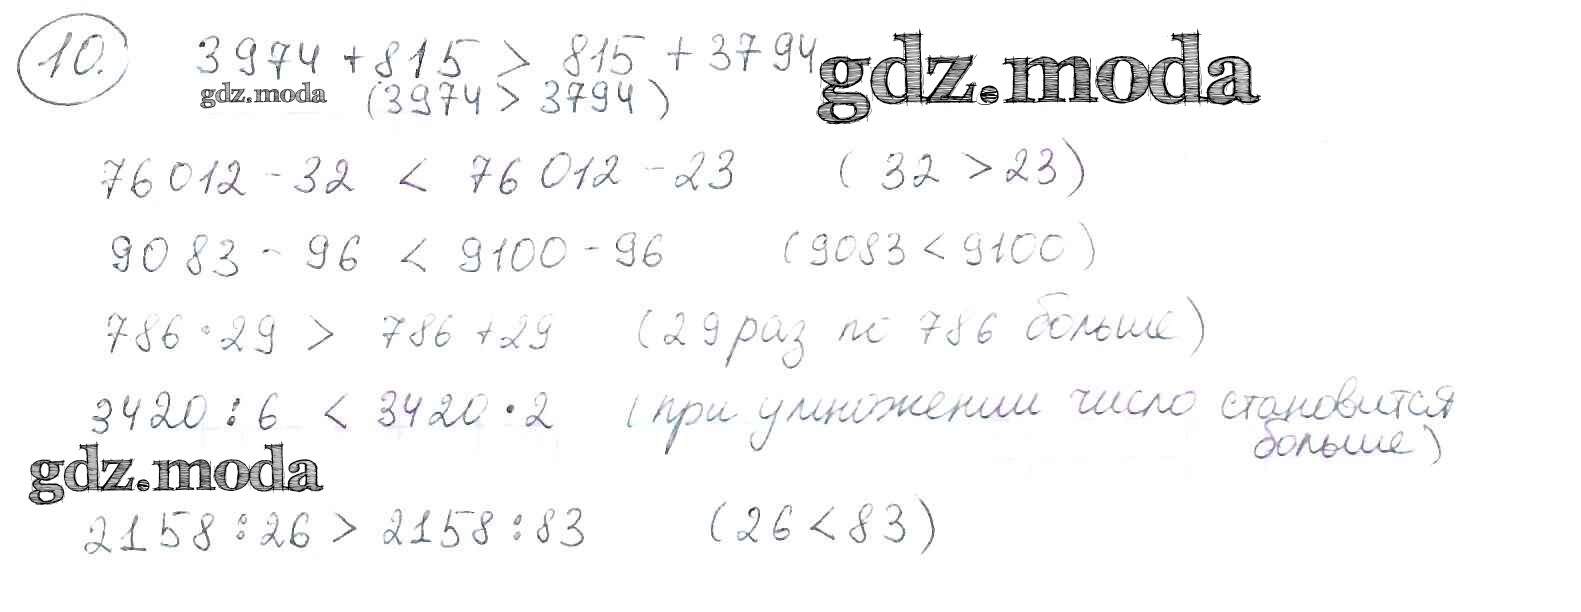 10. 3974 + 815 > 815 + 3794
gdz.moda
gdz.moda (3974 > 3794)
76012 - 32 < 76012 - 23 (32 > 23)
9083 - 96 < 9100 - 96 (9083 < 9100)
786 · 29 > 786 + 29 (29 раз по 786 больше)
3420 : 6 < 3420 · 2 (при умножении число становится
больше)
gdz.moda
2158 : 26 > 2158 : 83 (26 < 83)